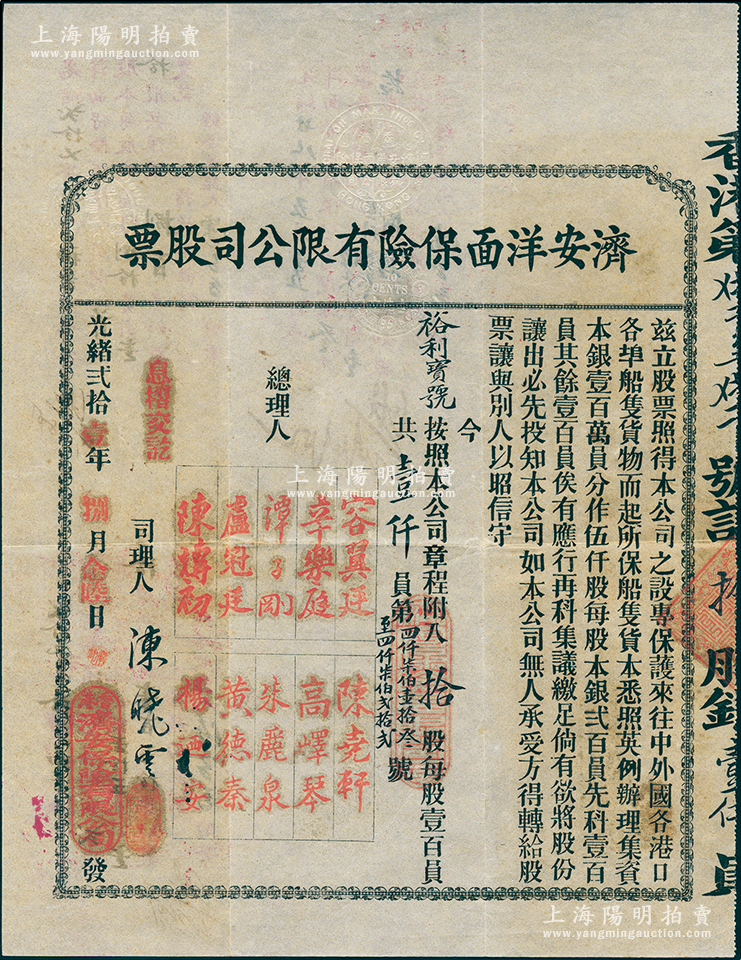 上海陽明拍賣
www.yangmingauction.com
濟安洋面保險有限公司股票
茲立股票照得本公司之設專保護來往中外國各港口
各埠船隻貨物而起所保船隻貨本悉照英例辦理集資
本銀壹百萬員分作伍仟股每股本銀弍百員先科壹百
員其餘壹百員俟有應行再科集議繳足倘有欲將股份
讓出必先投知本公司如本公司無人承受方得轉給股
票讓與別人以昭信守
今
裕利寶號按照本公司章程附入拾股每股壹百員
共壹仟員第四仟柒伯壹拾叁至四仟柒伯弍拾弍號
總理人
容翼廷
辛樂庭
譚子剛
盧冠廷
陳
陳堯軒
高嶧琴
朱麗泉
黃德泰
楊
司理人
陳曉雲
息摺交訖
光緒弍拾壹年捌月陸日
發
香港第
號計拾股銀壹仟員
上海陽明拍賣
www.yangmingauction.com
上海陽明拍賣
www.yangmingauction.com